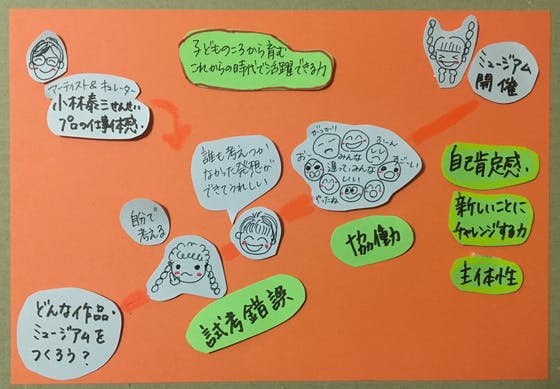 子どものころから育む
これからの時代で活躍できる力
アーティスト&キュレーター
小林泰三せんせい
プロの仕事体感.
ミュージアム
開催
誰も考えつか
なかった発想が
できてうれしい
自分で
考える
がっかり
みんな
違って、みんな
いい
やったね
協働
自己肯定感.
新しいことに
チャレンジする力
主体性
試考錯誤
どんな作品.
ミュージアムを
つくろう?